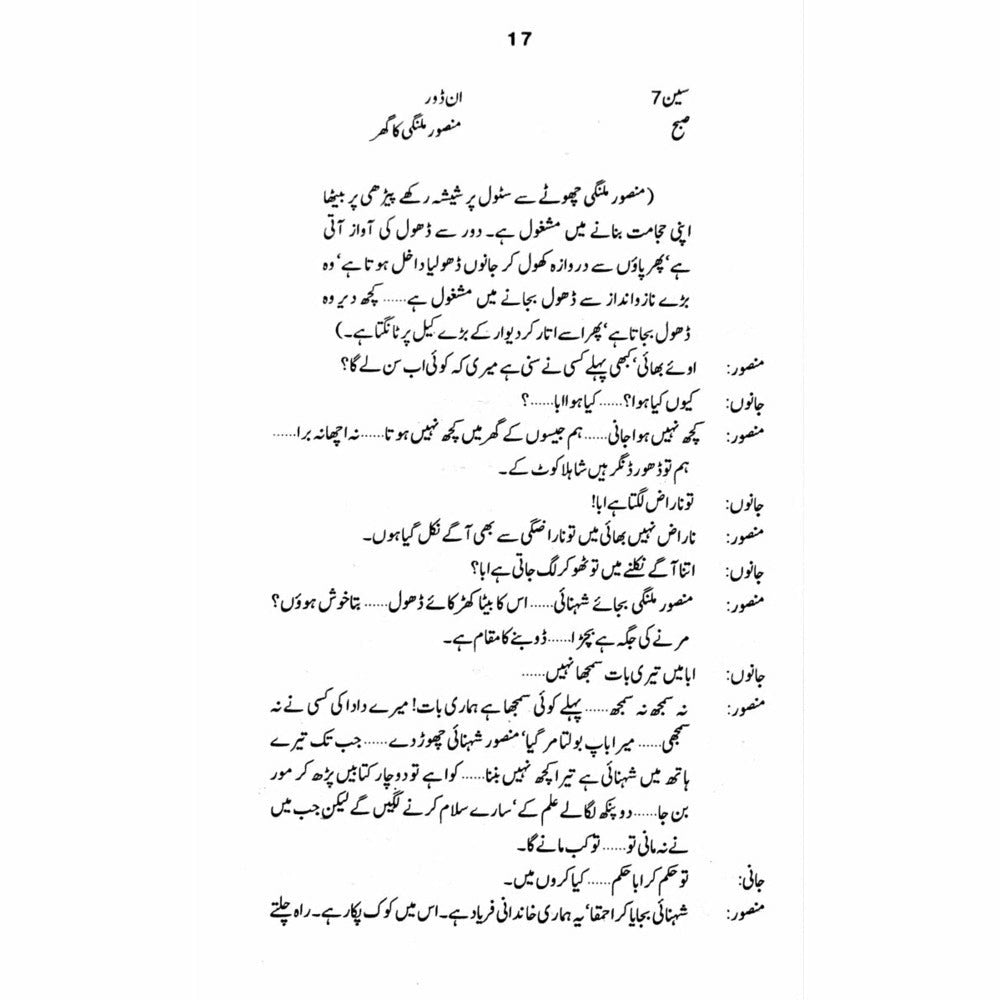 17
سین 7 ان ڈور
صبح منصور ملنگی کا گھر
(منصور ملنگی چھوٹے سے سٹول پر شیشہ رکھے پیڑھی پر بیٹھا
اپنی حجامت بنانے میں مشغول ہے۔ دور سے ڈھول کی آواز آتی
ہے‘ پھر پاؤں سے دروازہ کھول کر جانوں ڈھولیا داخل ہوتا ہے‘ وہ
بڑے ناز و انداز سے ڈھول بجانے میں مشغول ہے...... کچھ دیر وہ
ڈھول بجاتا ہے‘ پھر اسے اتار کر دیوار کے بڑے کیل پر ٹانگتا ہے۔)
منصور: اوئے بھائی‘ کبھی پہلے کسی نے سنی ہے میری کہ کوئی اب سن لے گا؟
جانوں: کیوں کیا ہوا؟...... کیا ہوا ابا......؟
منصور: کچھ نہیں ہوا جانی...... ہم جیسوں کے گھر میں کچھ نہیں ہوتا...... نہ اچھا نہ برا......
ہم تو ڈھور ڈنگر ہیں شاہلا کوٹ کے۔
جانوں: تو ناراض لگتا ہے ابا!
منصور: ناراض نہیں بھائی میں تو ناراضگی سے بھی آگے نکل گیا ہوں۔
جانوں: اتنا آگے نکلنے میں تو ٹھوکر لگ جاتی ہے ابا؟
منصور: منصور ملنگی بجائے شہنائی...... اس کا بیٹا کھڑکائے ڈھول...... بتا خوش ہوؤں؟
مرنے کی جگہ ہے بچڑا...... ڈوبنے کا مقام ہے۔
جانوں: ابا میں تیری بات سمجھا نہیں......
منصور: نہ سمجھ نہ سمجھ...... پہلے کوئی سمجھا ہے ہماری بات! میرے دادا کی کسی نے نہ
سمجھی...... میرا باپ بولتا مر گیا‘ منصور شہنائی چھوڑ دے...... جب تک تیرے
ہاتھ میں شہنائی ہے تیرا کچھ نہیں بننا...... کوا ہے تو دو چار کتابیں پڑھ کر مور
بن جا...... دو پنکھ لگا لے علم کے‘ سارے سلام کرنے لگیں گے لیکن جب میں
نے نہ مانی تو...... تو کب مانے گا۔
جانی: تو حکم کر ابا حکم...... کیا کروں میں۔
منصور: شہنائی بجایا کر احمقا‘ یہ ہماری خاندانی فریاد ہے۔ اس میں کوک پکار ہے۔ راہ چلتے